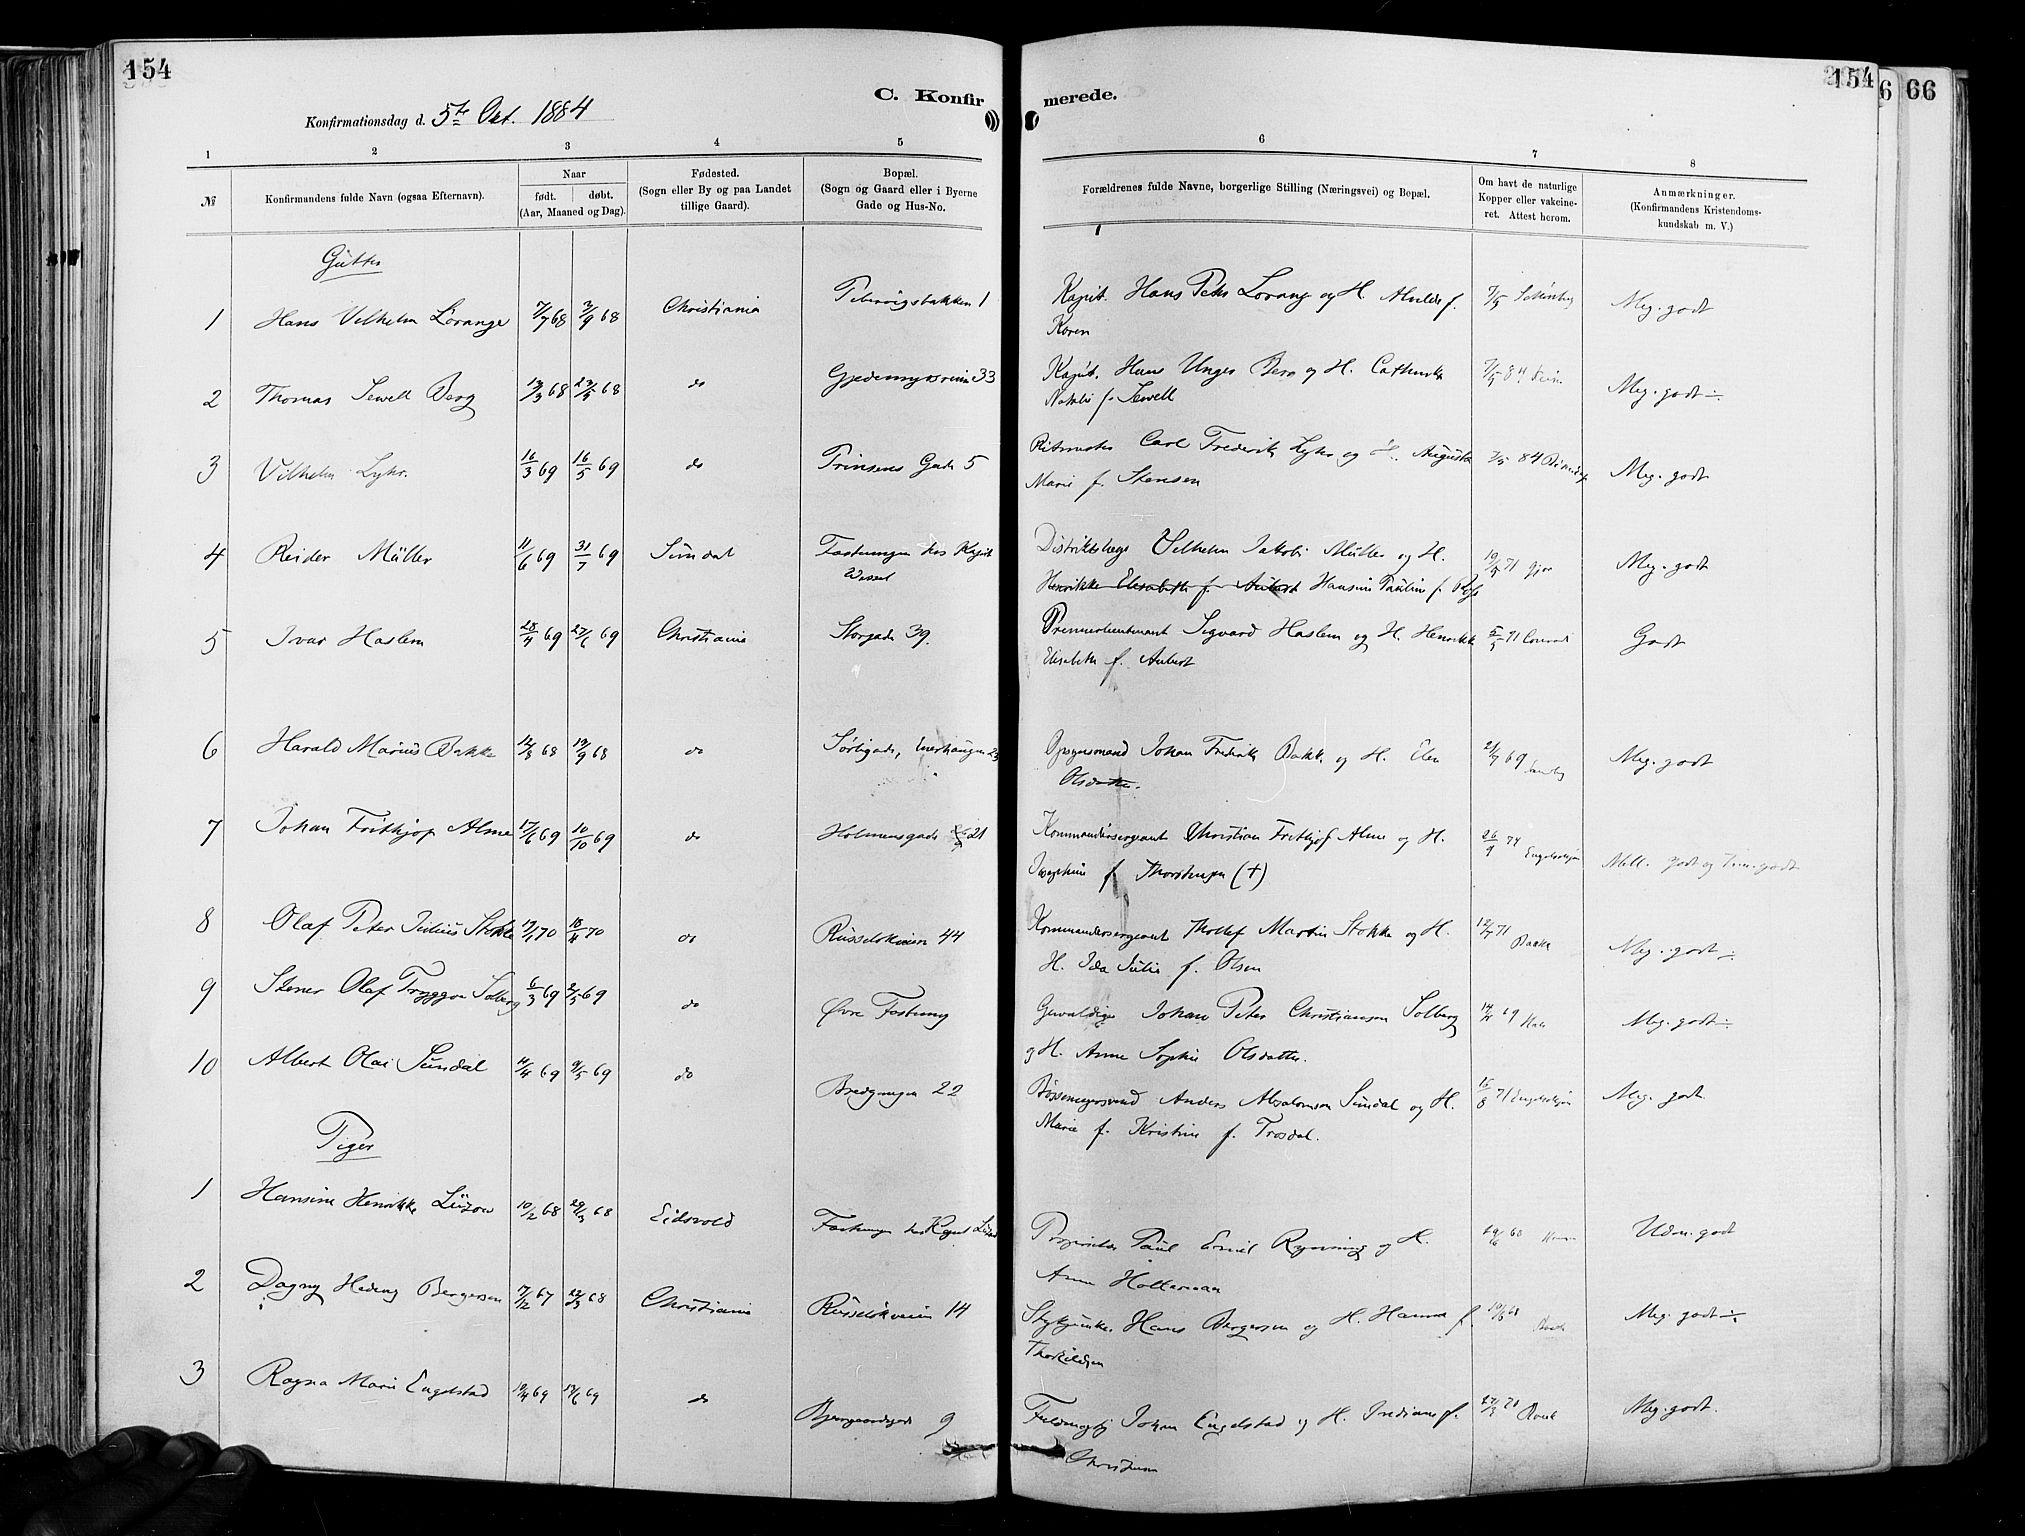 154
154
66
6
C. Konfirmerede.
Konfirmationsdag d. 5te Okt. 1884
1 2 3 4 5 6 7 8
№
Konfirmandens fulde Navn (ogsaa Efternavn).
Naar
født. døbt.
(Aar, Maaned og Dag).
Fødested.
(Sogn eller By og paa Landet
tillige Gaard).
Bopæl.
(Sogn og Gaard eller i Byerne
Gade og Hus-No.
Forældrenes fulde Navne, borgerlige Stilling (Næringsvei) og Bopæl.
Om havt de naturlige
Kopper eller vakcine-
ret. Attest herom.
Anmærkninger.
(Konfirmandens Kristendoms-
kundskab m. V.)
Gutter
1 Hans Vilhelm Lorange 7/7 68 3/9 68 Christiania 1 Kapt. Hans Peter Lorang og H. f. Meg. godt
Koren
2 Thomas Sewell Berg 13/3 68 68 do 33 Kapt. Hans Unger Berg og H. Cathrika 84 Meg. godt ÷
Natalie f. Sewell
3 Vilhelm Lyhr. 16/3 69 16/5 69 do Prinsens Gade 5 Ritmester Carl Frederik Lyhr og H. Augusta 84 Meg. godt
Marie f. Stensen
4 Reider Müller 11/6 69 31/7 69 Sundal Fæstningen hos Kapt Distriktslæge Vilhelm Jakob Müller og H. 71 Meg. godt
Wessel Henrikke Elisabeth f. Aubert Hansine Pauline f.
5 Ivar Haslem 28/4 69 69 Christiania Storgade 39. Premierlieutenant Sigvard Haslem og H. Henrikke 71 Conradi Godt
Elisabeth f. Aubert
6 Harald Marius Bakke 12/8 68 13/9 68 do Sørligade, Enerhaugen 23 Opsynsmand Johan Fredrik Bakke og H. Elen 69 Meg. godt
Olsdatter.
7 Johan Frithjof Alme 69 10/10 69 do Holmensgade 21 Kommandersergeant Christian Frithjof Alme og H. 26/9 74 Mell. godt og Tem. godt
Josephine f. Thorstensen (+)
8 Olaf Peter Julius Stokke 70 18/4 70 do Russeløkveien 44 Kommandersergeant Thollef Martin Stokke og H. 71 Meg. godt ÷
H. Ida Julie f. Olsen
9 Stener Olaf Tryggve Solberg 6/3 69 2/5 69 do Øvre Fæstning Gevaldiger Johan Peter Christiansen Solberg 69 Meg. godt ÷
og H. Anne Sophie Olsdatter.
10 Albert Olai Sundal 11/4 69 9/5 69 do Bredgangen 22 Bøssemagersvend Anders Absalomsen Sundal og H. 15/8 71 Meg. godt
Marie f. Kristine f. Trosdal.
Piger
1 Hansine Henrikke Lützow 10/2 68 29/3 68 Eidsvold Fæstningen hos Kapt Proprietær Paul Emil Rynning og H. Udm. godt
Anne Holterman
2 Dagny Hedvig Bergersen 7/12 67 22/3 68 Christiania Russeløkveien 14 Stykjunker Hans Bergersen og H. Hanna f. 68 Meg. godt ÷
Thorkildsen
3 Ragna Marie Engelstad 19/4 69 69 do Bjergaardsgade 9 Johan Engelstad og H. Indiane f. Meg. godt.
Christensen